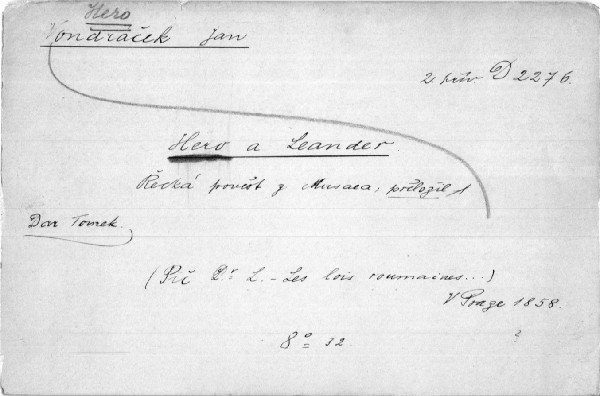 Hero
Vondráček Jan
2 přív D 2276.
Hero a Leander.
Řecká pověst z Musaea, přeložil
Dar Tomek.
(Píč Dr L. - Les lois roumaines...)
V Praze 1858.
8° 12.
?